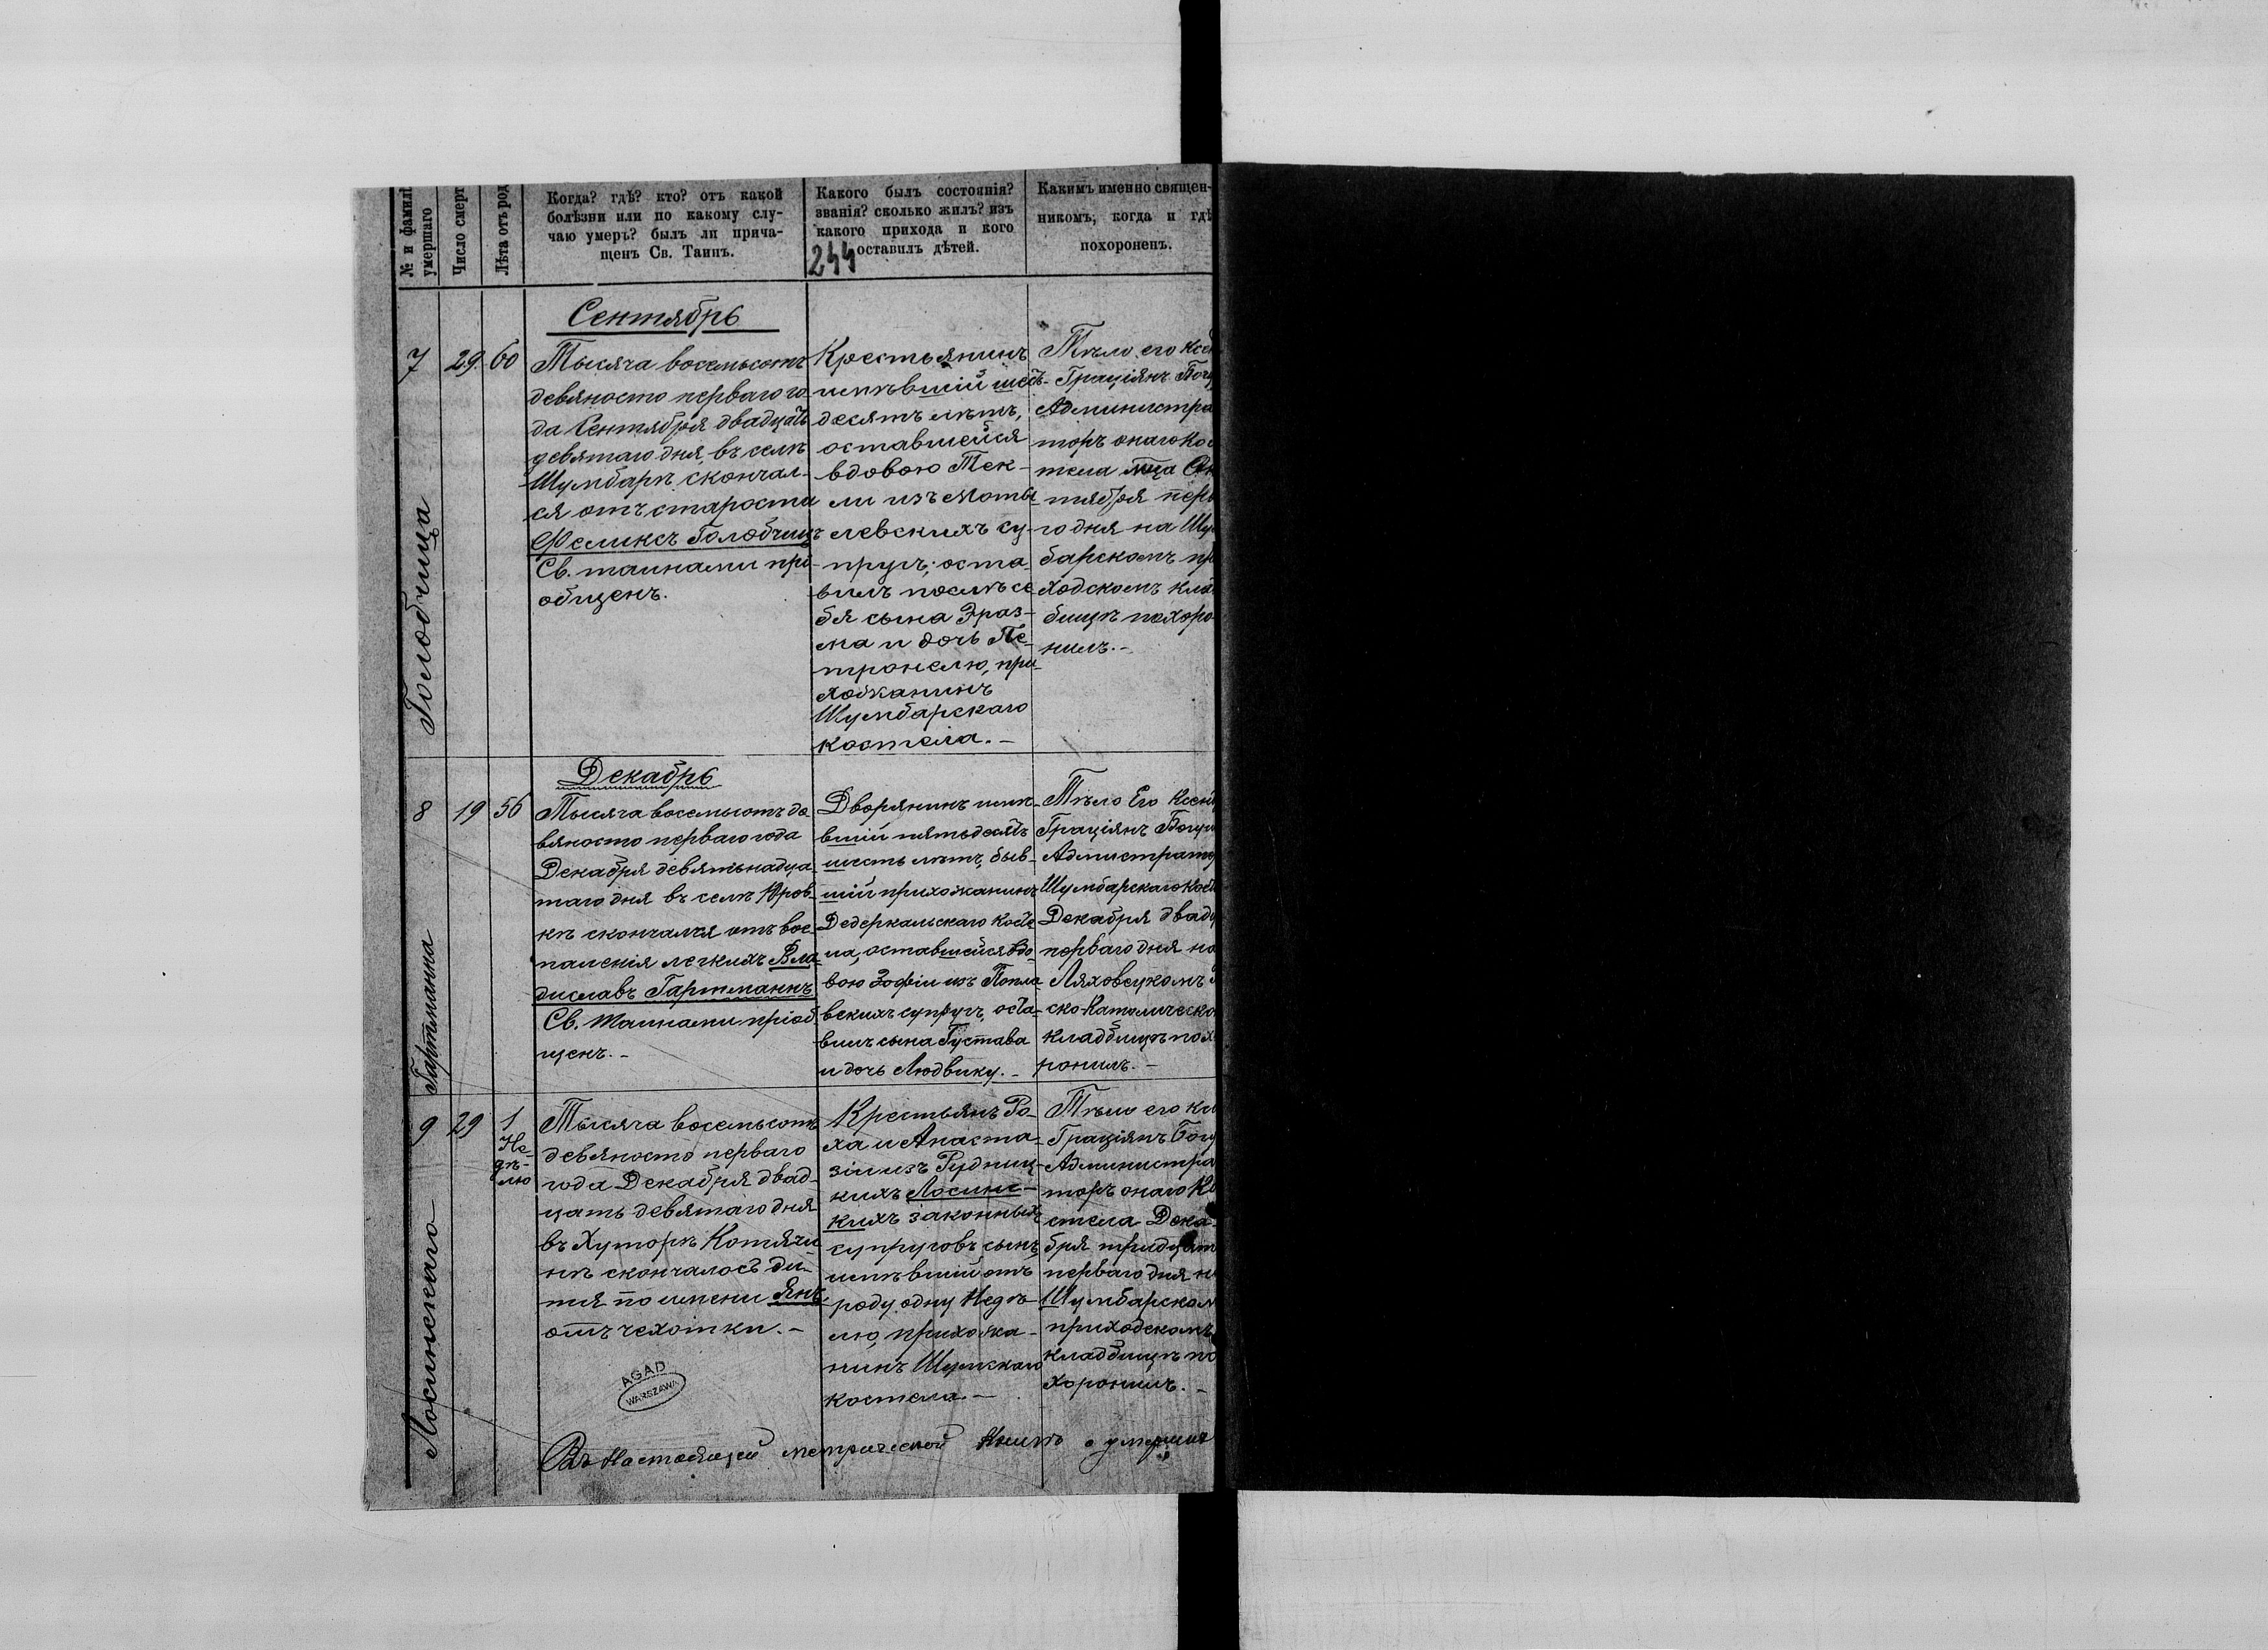 № и фамилі
умершаго
Число смерт
Лѣта отъ род
Когда? гдѣ? кто? отъ какой
болѣзни или по какому слу-
чаю умеръ? былъ ли прича-
щенъ Св. Таинъ.
Какого былъ состоянія?
званія? сколько жилъ? изъ
какого прихода и кого
оставилъ дѣтей.
244
Какимъ именно священ-
никомъ, когда и гдѣ
похороненъ.
Сентябрь
7
Голобчица
29.
60
Тысяча восемьсотъ
девяносто перваго го
да Сентября двадцать
девятаго дня, въ селѣ
Шумбарѣ скончал-
ся отъ старости
Феликсъ Голобчицъ
Св. таинами прі-
общенъ.
Крестьянинъ
имѣвшій шесть-
десятъ лѣтъ,
оставшейся
вдовою Тек-
ли изъ Моты
левскихъ су-
пругъ; оста-
вилъ послѣ се
бя сына Эраз-
ма и дочь Пе-
тронелю, при-
хожанинъ
Шумбарскаго
костела.-
Тѣло его ксен
Граціянъ Богу
Администра
торъ онаго ко
тела мца Ок
тября перв
го дня на Шу
барскомъ пр
ходскомъ клад
бищѣ похоро
нилъ.-
Декабрь
8
Гартманна
19
56
Тысяча восемьсотъ де
вяносто перваго года
Декабря девятьнадца
таго дня въ селѣ Юров-
кѣ скончался отъ вос-
паленія легкихъ Вла-
диславъ Гартманнъ
Св. Таинами пріоб
щенъ.-
Дворянинъ имѣ-
вшій пятьдесятъ
шесть лѣтъ, быв-
шій прихожанинъ
Дедеркальскаго косте
ла, оставшейся вдо-
вою Зофіи изъ Попла-
вскихъ супругъ, оста-
вилъ сына Густава
и дочь Людвику.-
Тѣло Его Ксен
Граціянъ Богу
Адмистрато
Шумбарскаго кост
Декабря двад
перваго дня на
Ляховецкомъ
ско-Католическо
кладбищѣ пох
ронилъ.-
9
Лосинскаго
29
1
Не-
дѣ-
лю
Тысяча восемьсотъ
девяносто перваго
года Декабря двад-
цать девятаго дня
въ Хуторѣ Котячи-
нѣ скончалось ди-
тя по имени Янъ,
отъ чехотки.-
Крестьянъ Ро-
ха и Анаста-
зіи изъ Рудниц-
кихъ Лосинс-
кихъ законныхъ
супруговъ сынъ,
имѣвшій отъ
роду одну Недѣ-
лю, прихожа-
нинъ Шумскаго
костела.-
Тѣло его кс
Граціянъ Богу
Администра
торъ онаго Ко
стела Дека-
бря тридцат
перваго дня н
Шумбарском
приходскомъ
кладбищѣ по
хоронилъ.-
AGAD
WARSZAWA
Въ Настоящей метрической Книгѣ о умершихъ